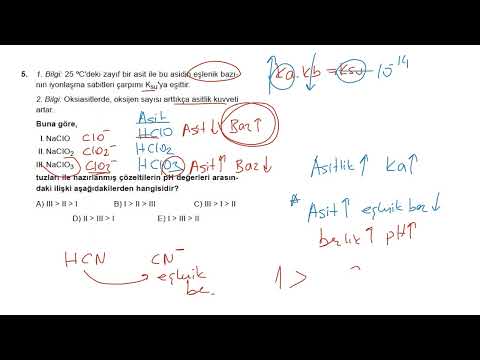 5. 1. Bilgi: 25 ºC'deki zayıf bir asit ile bu asidin eşlenik bazı-
nın iyonlaşma sabitleri çarpımı Ksu'ya eşittir.
2. Bilgi: Oksiasitlerde, oksijen sayısı arttıkça asitlik kuvveti
artar.
Buna göre,
I. NaClO
II. NaClO2
III. NaClO3
tuzları ile hazırlanmış çözeltilerin pH değerleri arasın-
daki ilişki aşağıdakilerden hangisidir?
A) III > II > I B) I > II > III C) III > I > II
D) II > III > I E) I > III > II
ClO⁻
ClO2⁻
Asit
HClO
HClO2
HClO3
Asit↓ Baz↑
Asit↑ Baz↓
Ka . Kb = Ksu 10⁻¹⁴
Asitlik ↑ Ka↑
Asit↑ eşlenik baz↓
bazlık↑ pH↑
HCN CN⁻
eşlenik
1 >